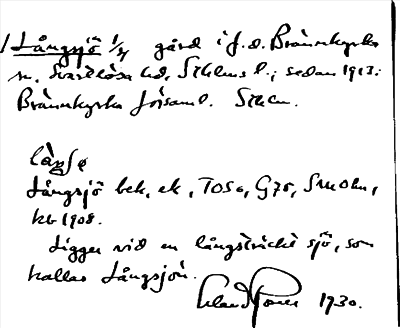 Långsjö 1/4 gård i f. d. Brännkyrka
sn. Svartlösa hd, Sthlms l.; sedan 1913:
Brännkyrka församl. Sthlm.
Långsjö bek, ek, TOSc, G70, Smohn,
kb 1908.
Ligger vid en långsträckt sjö, som
kallas Långsjön.
1930.